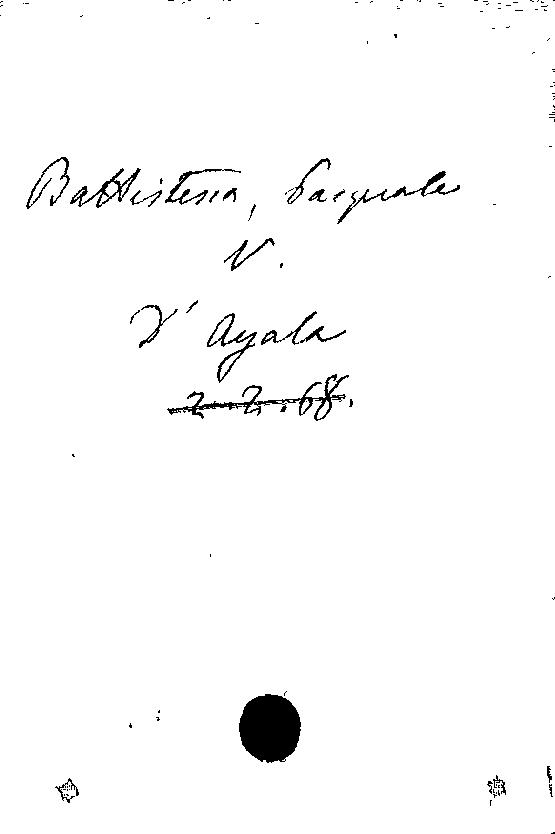 Battistessa, Pasquale
V.
D'Ayala
2.2.68.